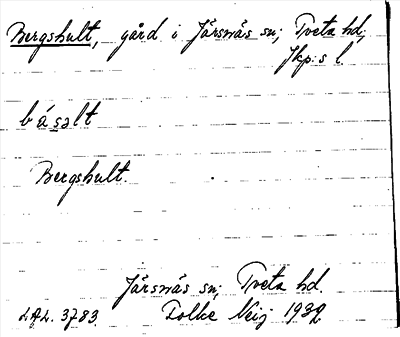 Bergshult, gård i Järsnäs sn; Tveta hd;
Jkp:s l.
básəlt
Bergshult.
Järsnäs sn; Tveta hd.
ULA. 3783. Folke Neij 1932